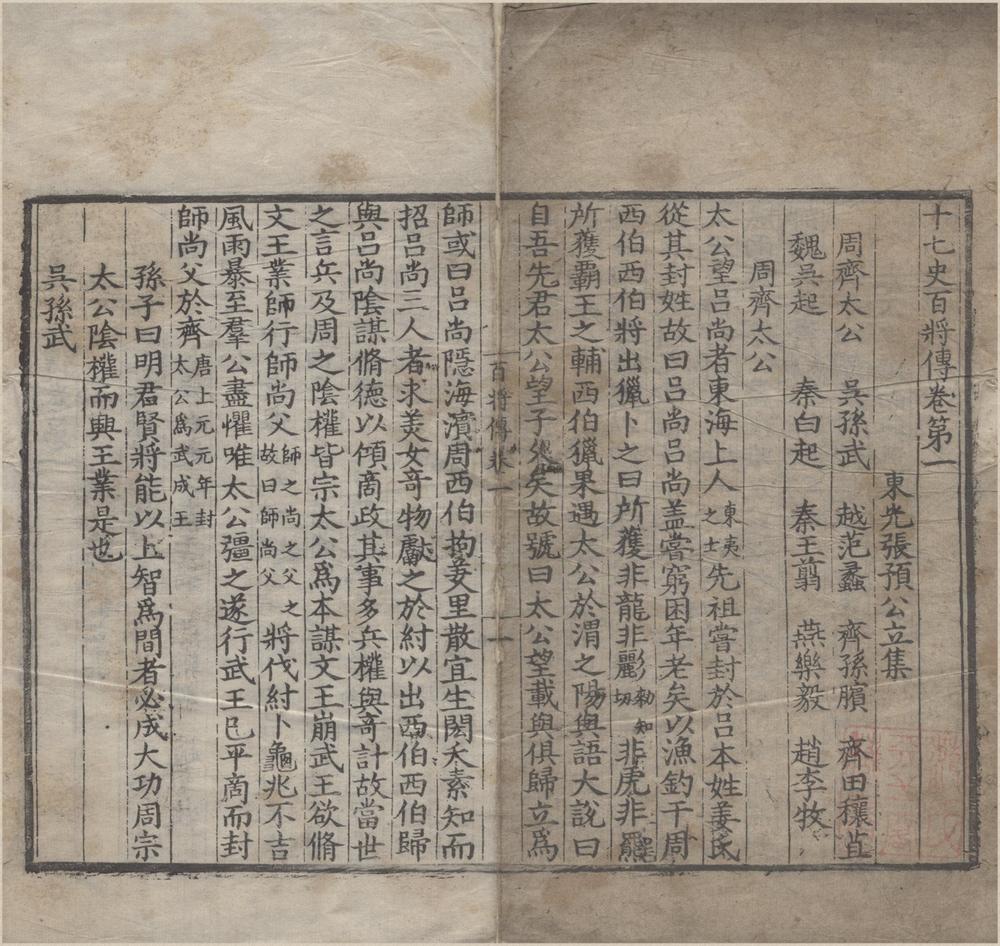 十七史百將傳卷第一
東光張預公立集
周齊太公 吳孫武 越范蠡 齊孫臏 齊田穰苴
魏吳起 秦白起 秦王翦 燕樂毅 趙李牧
周齊太公
太公望呂尚者東海上人東夷之士先祖嘗封於呂本姓姜氏
從其封姓故曰呂尚呂尚盖嘗窮困年老矣以漁釣干周
西伯西伯將出獵卜之曰所獲非龍非彨勑知切非虎非羆
所獲霸王之輔西伯獵果遇太公於渭之陽與語大說曰
自吾先君太公望子久矣故號曰太公望載與俱歸立爲
百將傳卷一 一
師或曰呂尚隱海濱周西伯拘羑里散宜生閎夭素知而
招呂尚三人者求美女竒物獻之於紂以出西伯西伯歸
與呂尚陰謀脩德以傾商政其事多兵權與竒計故當世
之言兵及周之陰權皆宗太公爲本謀文王崩武王欲脩
文王業師行師尚父師之尚之父之故曰師尚父將伐紂卜龜兆不吉
風雨暴至羣公盡懼唯太公彊之遂行武王已平商而封
師尚父於齊唐上元元年封太公爲武成王
孫子曰明君賢將能以上智爲間者必成大功周宗
太公陰權而興王業是也
吳孫武